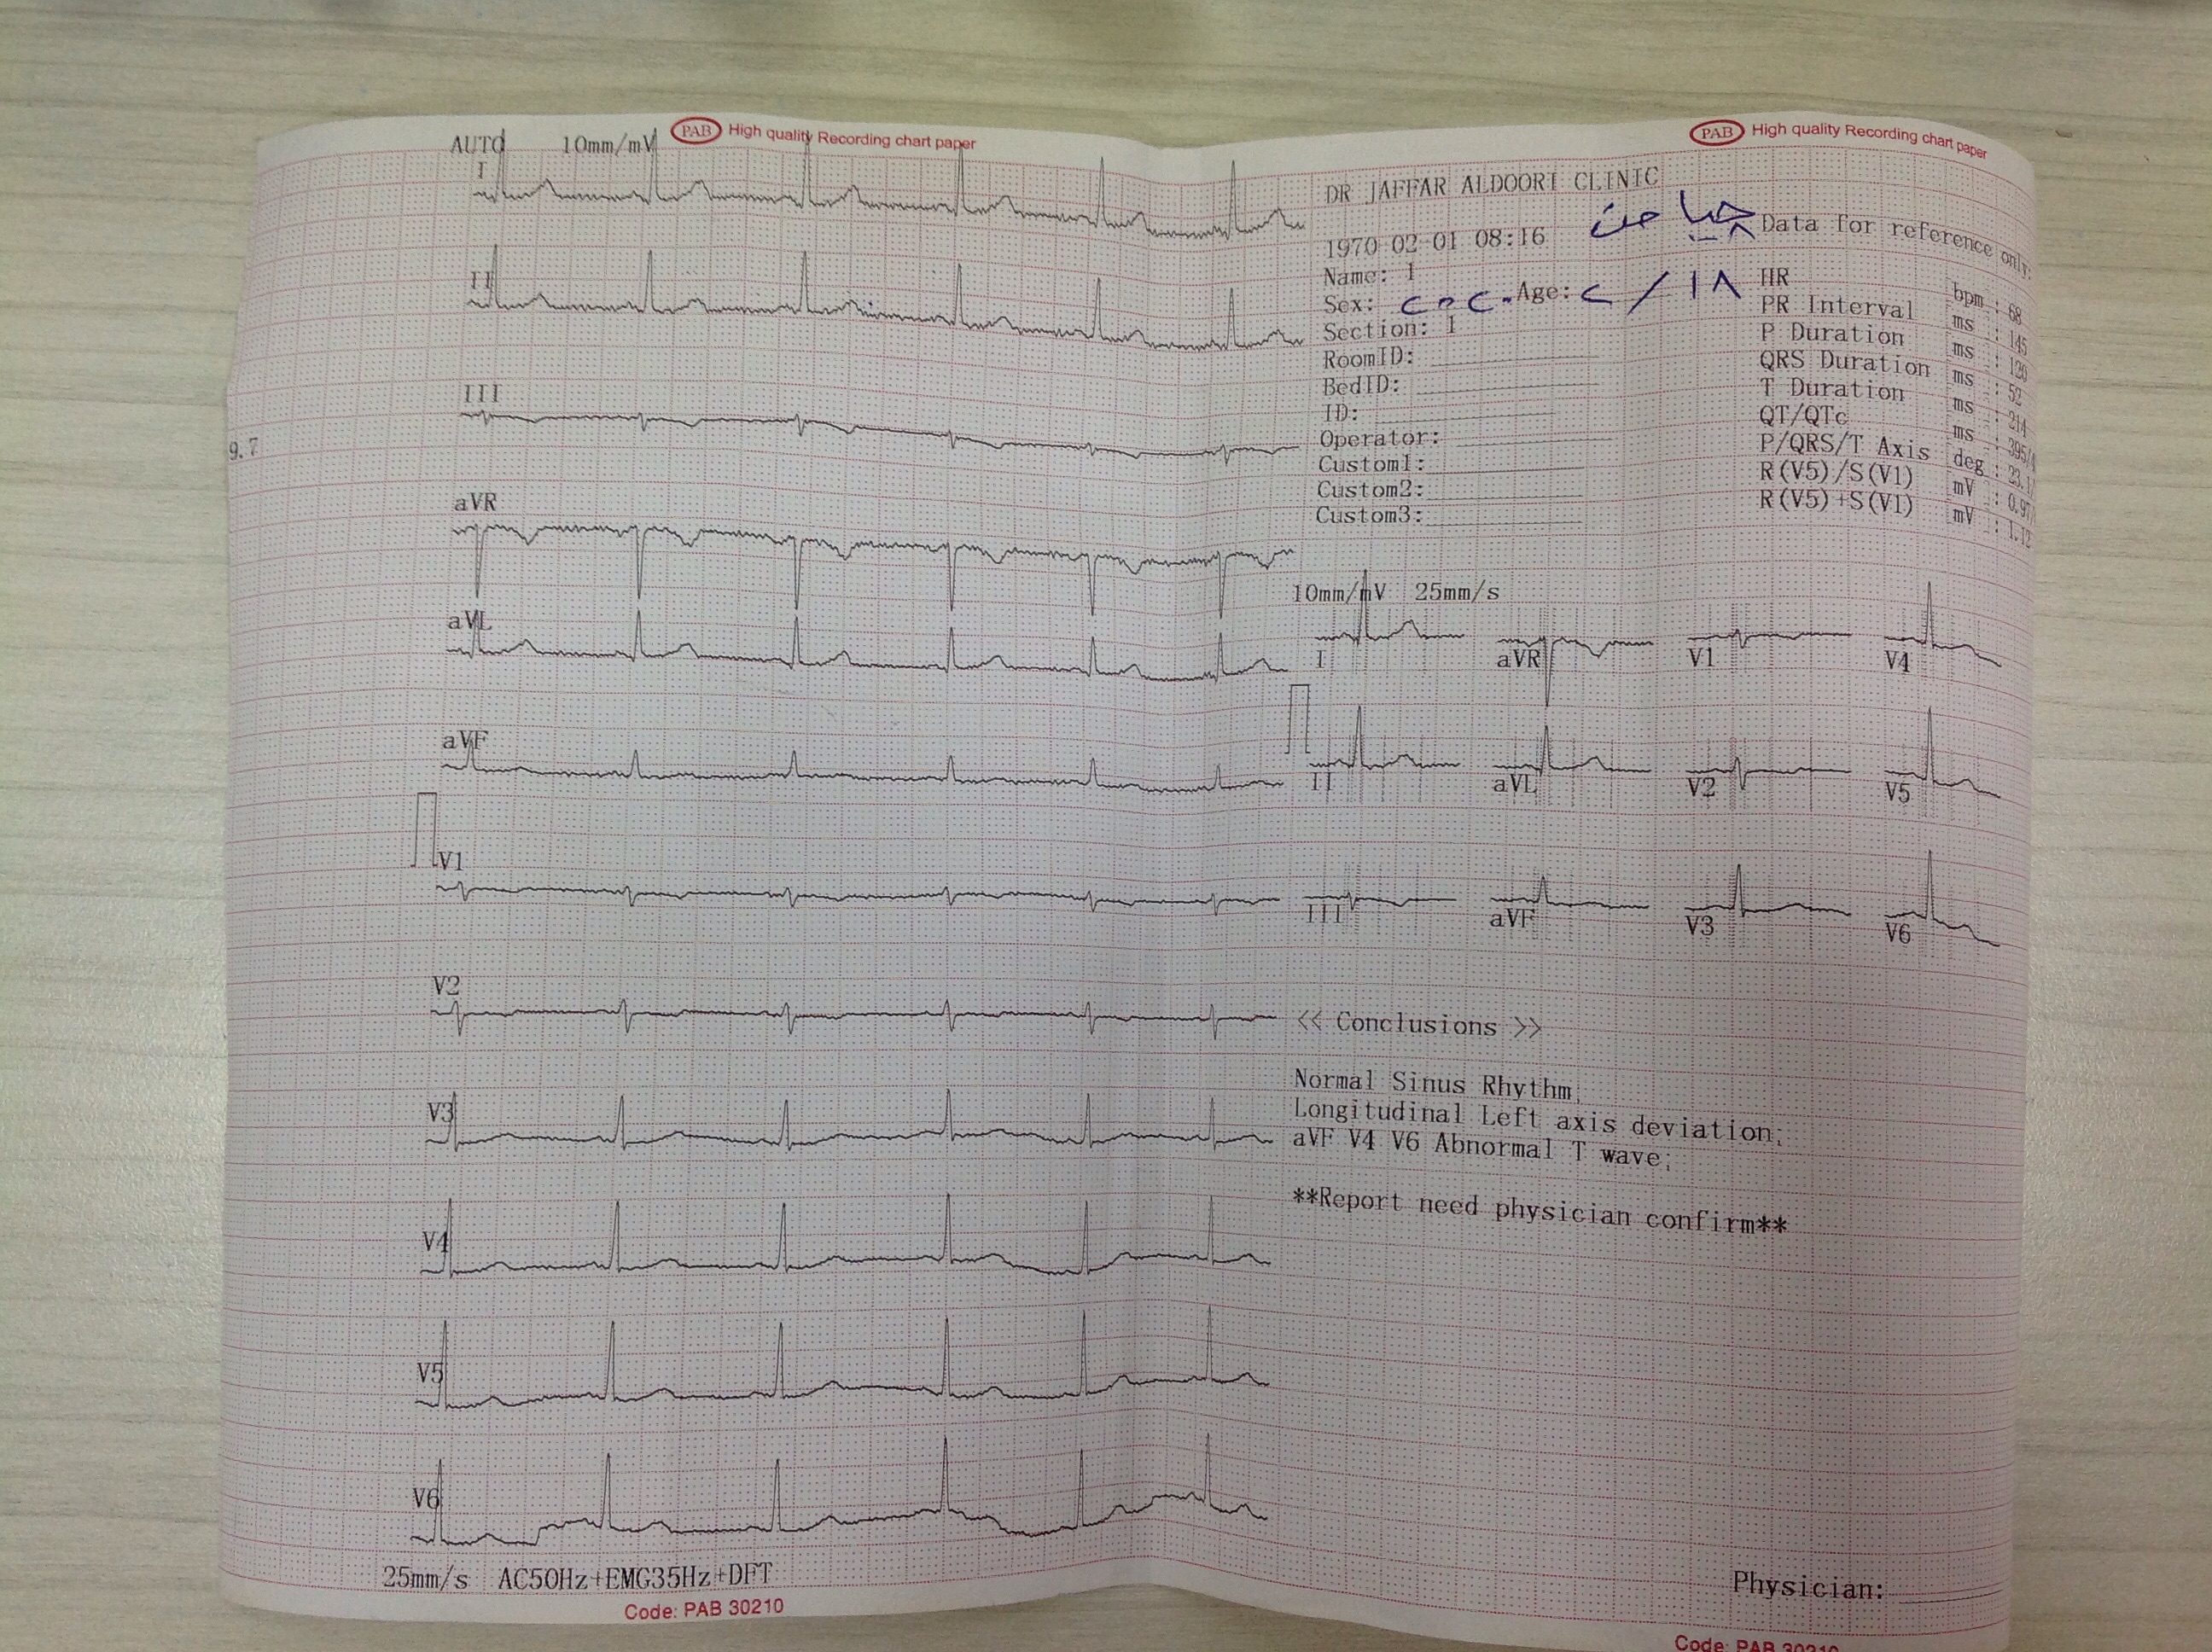 PAB High quality Recording chart paper
PAB High quality Recording chart paper
AUTO 10mm/mV
I
II
III
9.7
aVR
aVL
aVF
V1
V2
V3
V4
V5
V6
25mm/s AC50Hz+EMG35Hz+DFT
Code: PAB 30210
DR JAFFAR ALDOORI CLINIC
1970-02-01 08:16
Name: 1
Sex: Age: ١٨ /
Section: 1
RoomID:
BedID:
ID:
Operator:
Custom1:
Custom2:
Custom3:
Data for reference only:
HR bpm : 68
PR Interval ms : 145
P Duration ms : 120
QRS Duration ms : 52
T Duration ms : 214
QT/QTc ms : 395/
P/QRS/T Axis deg : 23.1/
R(V5)/S(V1) mV : 0.97/
R(V5)+S(V1) mV : 1.12
10mm/mV 25mm/s
I aVR V1 V4
II aVL V2 V5
III aVF V3 V6
<< Conclusions >>
Normal Sinus Rhythm;
Longitudinal Left axis deviation;
aVF V4 V6 Abnormal T wave;
**Report need physician confirm**
Physician:
Code: PAB 30210